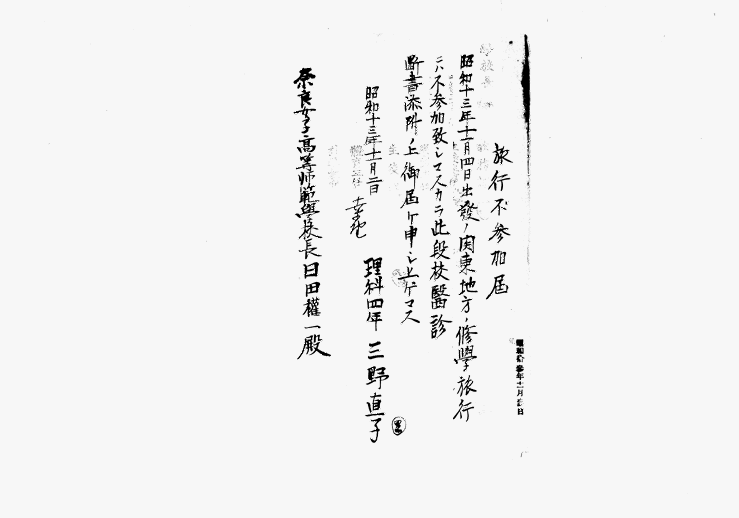 旅行不参加届
昭和十三年十一月四日出發ノ関東地方ノ修學旅行
ニハ不参加致シマスカラ此段校醫診
断書添附ノ上御届ケ申シ上ゲマス
昭和十三年十一月二日
理科四年 三野直子
奈良女子高等師範學校長 日田權一殿